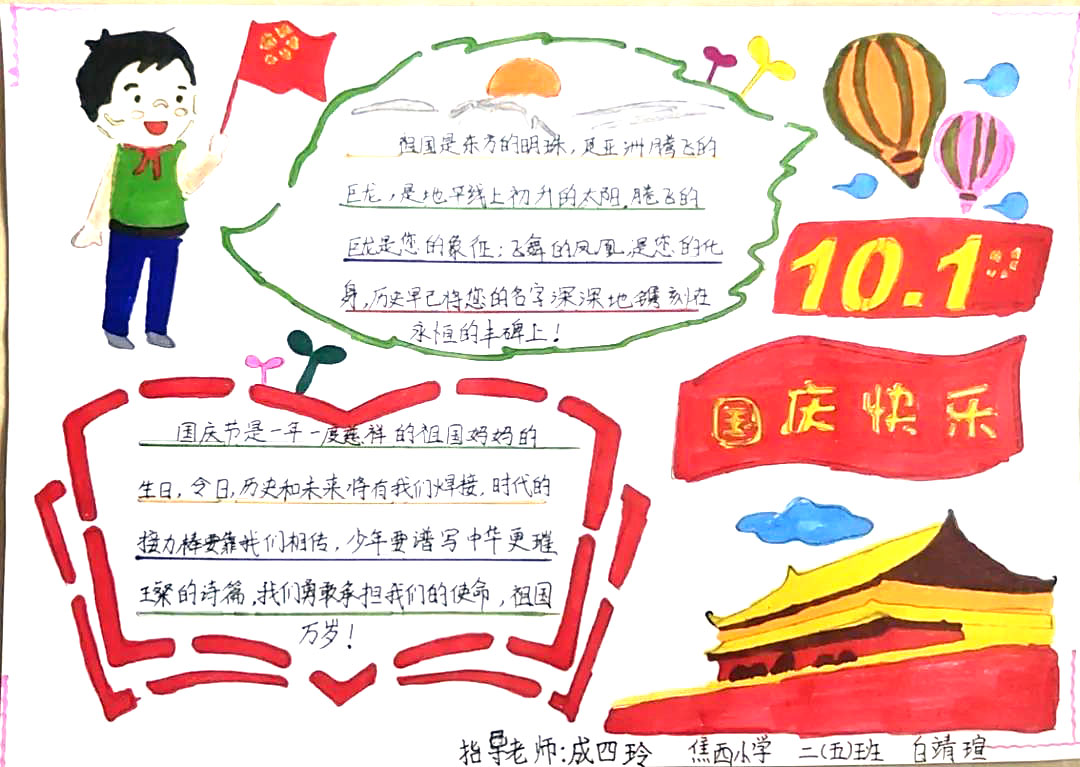 祖国是东方的明珠，是亚洲腾飞的
巨龙，是地平线上初升的太阳。腾飞的
巨龙是您的象征；飞舞的凤凰，是您的化
身，历史早已将您的名字深深地镌刻在
永恒的丰碑上！
10.1
国庆快乐
国庆节是一年一度慈祥的祖国妈妈的
生日，今日，历史和未来将有我们焊接，时代的
接力棒要靠我们相传，少年要谱写中华更璀
璨的诗篇，我们勇敢承担我们的使命，祖国
万岁！
指导老师：成四玲 焦西小学 二（五）班 白靖瑄